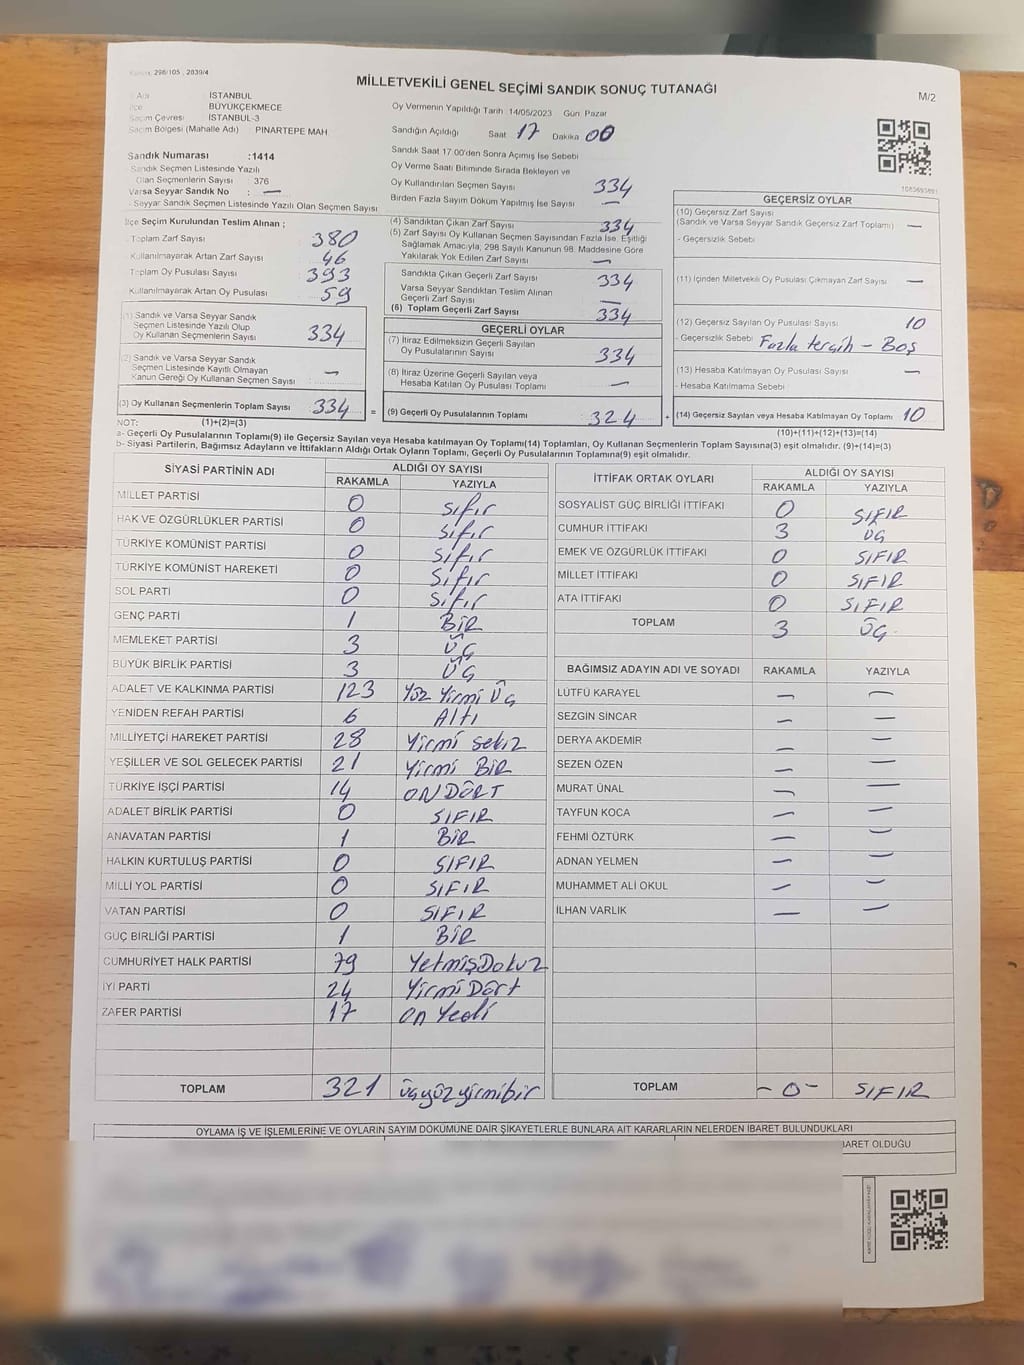 298/105 , 2039/4
MİLLETVEKİLİ GENEL SEÇİMİ SANDIK SONUÇ TUTANAĞI
M/2
Adı İSTANBUL
İlçe BÜYÜKÇEKMECE
Seçim Çevresi İSTANBUL-3
Seçim Bölgesi (Mahalle Adı) PINARTEPE MAH
Sandık Numarası :1414
Sandık Seçmen Listesinde Yazılı
Olan Seçmenlerin Sayısı : 376
Varsa Seyyar Sandık No : —
- Seyyar Sandık Seçmen Listesinde Yazılı Olan Seçmen Sayısı
Oy Vermenin Yapıldığı Tarih 14/05/2023 Gün Pazar
Sandığın Açıldığı Saat 17 Dakika 00
Sandık Saat 17:00'den Sonra Açımış İse Sebebi
Oy Verme Saati Bitiminde Sırada Bekleyen ve
Oy Kullandırılan Seçmen Sayısı 334
Birden Fazla Sayım Döküm Yapılmış İse Sayısı —
İlçe Seçim Kurulundan Teslim Alınan ;
- Toplam Zarf Sayısı 380
- Kullanılmayarak Artan Zarf Sayısı 46
Toplam Oy Pusulası Sayısı 393
Kullanılmayarak Artan Oy Pusulası 59
(1) Sandık ve Varsa Seyyar Sandık
Seçmen Listesinde Yazılı Olup
Oy Kullanan Seçmenlerin Sayısı 334
(2) Sandık ve Varsa Seyyar Sandık
Seçmen Listesinde Kayıtlı Olmayan
Kanun Gereği Oy Kullanan Seçmen Sayısı —
(3) Oy Kullanan Seçmenlerin Toplam Sayısı 334
(1)+(2)=(3)
(4) Sandıktan Çıkan Zarf Sayısı 334
(5) Zarf Sayısı Oy Kullanan Seçmen Sayısından Fazla İse, Eşitliği
Sağlamak Amacıyla, 298 Sayılı Kanunun 98. Maddesine Göre
Yakılarak Yok Edilen Zarf Sayısı —
Sandıkta Çıkan Geçerli Zarf Sayısı 334
Varsa Seyyar Sandıktan Teslim Alınan
Geçerli Zarf Sayısı —
(6) Toplam Geçerli Zarf Sayısı 334
GEÇERLİ OYLAR
(7) İtiraz Edilmeksizin Geçerli Sayılan
Oy Pusulalarının Sayısı 334
(8) İtiraz Üzerine Geçerli Sayılan veya
Hesaba Katılan Oy Pusulası Toplamı —
= (9) Geçerli Oy Pusulalarının Toplamı 324
1085693691
GEÇERSİZ OYLAR
(10) Geçersiz Zarf Sayısı
(Sandık ve Varsa Seyyar Sandık Geçersiz Zarf Toplamı) —
- Geçersizlik Sebebi
(11) İçinden Milletvekili Oy Pusulası Çıkmayan Zarf Sayısı —
(12) Geçersiz Sayılan Oy Pusulası Sayısı 10
- Geçersizlik Sebebi Fazla tercih - Boş
(13) Hesaba Katılmayan Oy Pusulası Sayısı —
- Hesaba Katılmama Sebebi
+ (14) Geçersiz Sayılan veya Hesaba Katılmayan Oy Toplamı 10
(10)+(11)+(12)+(13)=(14)
NOT:
a- Geçerli Oy Pusulalarının Toplamı(9) ile Geçersiz Sayılan veya Hesaba katılmayan Oy Toplamı(14) Toplamları, Oy Kullanan Seçmenlerin Toplam Sayısına(3) eşit olmalıdır. (9)+(14)=(3)
b- Siyasi Partilerin, Bağımsız Adayların ve İttifakların Aldığı Ortak Oyların Toplamı, Geçerli Oy Pusulalarının Toplamına(9) eşit olmalıdır.
SİYASİ PARTİNİN ADI ALDIĞI OY SAYISI
RAKAMLA YAZIYLA
MİLLET PARTİSİ 0 sıfır
HAK VE ÖZGÜRLÜKLER PARTİSİ 0 sıfır
TÜRKİYE KOMÜNİST PARTİSİ 0 sıfır
TÜRKİYE KOMÜNİST HAREKETİ 0 sıfır
SOL PARTİ 0 sıfır
GENÇ PARTİ 1 BİR
MEMLEKET PARTİSİ 3 ÜÇ
BÜYÜK BİRLİK PARTİSİ 3 ÜÇ
ADALET VE KALKINMA PARTİSİ 123 Yüz Yirmi Üç
YENİDEN REFAH PARTİSİ 6 Altı
MİLLİYETÇİ HAREKET PARTİSİ 28 Yirmi sekiz
YEŞİLLER VE SOL GELECEK PARTİSİ 21 Yirmi BİR
TÜRKİYE İŞÇİ PARTİSİ 14 ON DÖRT
ADALET BİRLİK PARTİSİ 0 SIFIR
ANAVATAN PARTİSİ 1 BİR
HALKIN KURTULUŞ PARTİSİ 0 SIFIR
MİLLİ YOL PARTİSİ 0 SIFIR
VATAN PARTİSİ 0 SIFIR
GÜÇ BİRLİĞİ PARTİSİ 1 BİR
CUMHURİYET HALK PARTİSİ 79 YetmişDokuz
İYİ PARTİ 24 Yirmi Dört
ZAFER PARTİSİ 17 on Yedi
TOPLAM 321 üçyüzyirmibir
İTTİFAK ORTAK OYLARI ALDIĞI OY SAYISI
RAKAMLA YAZIYLA
SOSYALİST GÜÇ BİRLİĞİ İTTİFAKI 0 SIFIR
CUMHUR İTTİFAKI 3 ÜÇ
EMEK VE ÖZGÜRLÜK İTTİFAKI 0 SIFIR
MİLLET İTTİFAKI 0 SIFIR
ATA İTTİFAKI 0 SIFIR
TOPLAM 3 ÜÇ
BAĞIMSIZ ADAYIN ADI VE SOYADI RAKAMLA YAZIYLA
LÜTFÜ KARAYEL — —
SEZGİN SİNCAR — —
DERYA AKDEMİR — —
SEZEN ÖZEN — —
MURAT ÜNAL — —
TAYFUN KOCA — —
FEHMİ ÖZTÜRK — —
ADNAN YELMEN — —
MUHAMMET ALİ OKUL — —
İLHAN VARLIK — —
TOPLAM -0- SIFIR
OYLAMA İŞ VE İŞLEMLERİNE VE OYLARIN SAYIM DÖKÜMÜNE DAİR ŞİKAYETLERLE BUNLARA AİT KARARLARIN NELERDEN İBARET BULUNDUKLARI
BARET OLDUĞU